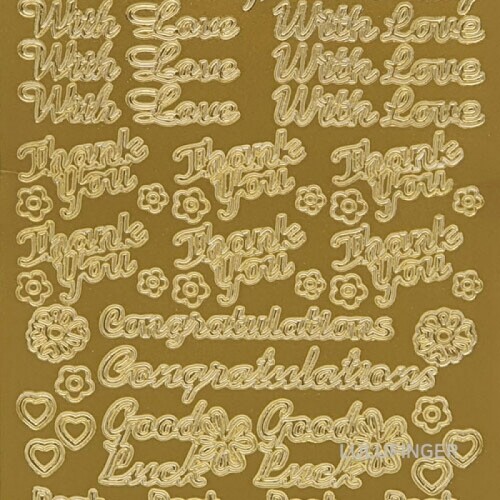 With Love With Love
With Love With Love
With Love With Love
Thank You Thank You Thank You
Thank You Thank You Thank You
Congratulations
Congratulations
Good Luck Good Luck